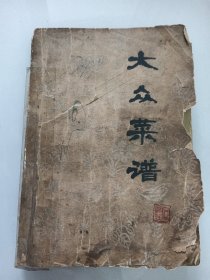 大众菜谱